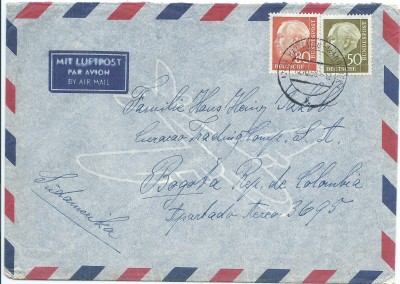 MIT LUFTPOST
PAR AVION
BY AIR MAIL
80
DEUTSCHE
50
DEUTSCHE
Familie Hans Heinz
Curacao Trading Comp. S. A
Bogotá Rep. de Colombia
Apartado Aereo 3695
Südamerika